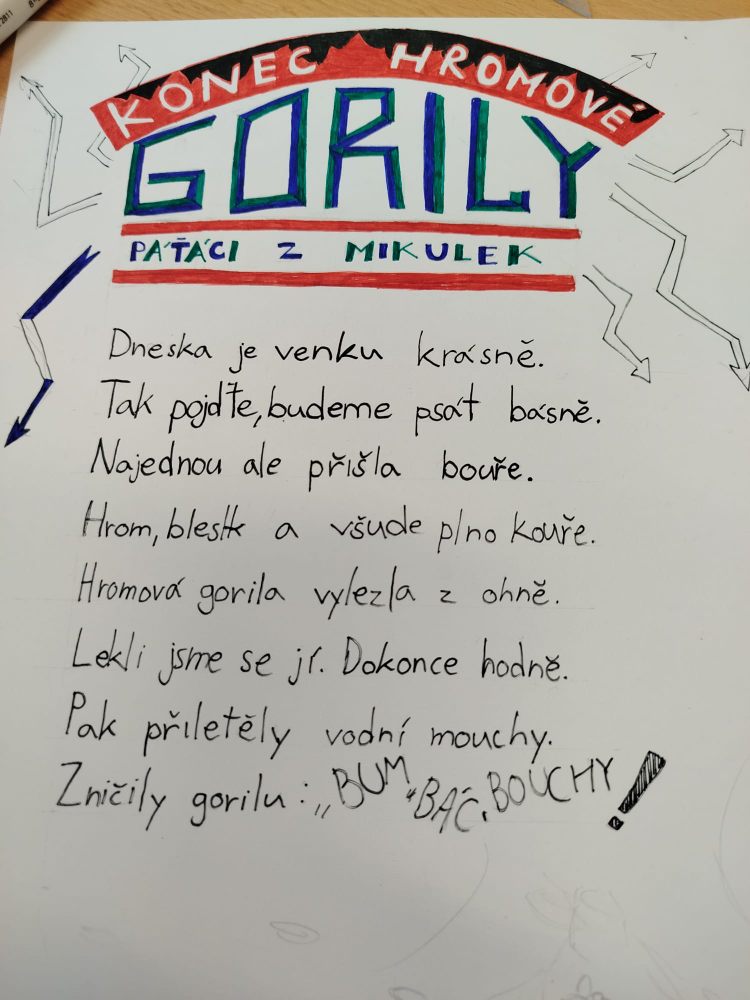 KONEC HROMOVÉ
GORILY
PÁŤÁCI Z MIKULEK
Dneska je venku krásně.
Tak pojďte, budeme psát básně.
Najednou ale přišla bouře.
Hrom, blesk a všude plno kouře.
Hromová gorila vylezla z ohně.
Lekli jsme se jí. Dokonce hodně.
Pak přiletěly vodní mouchy.
Zničily gorilu: „BUM, BÁC, BOUCHY!